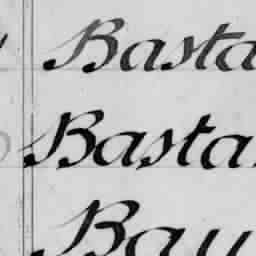 Basta
Basta
Bau